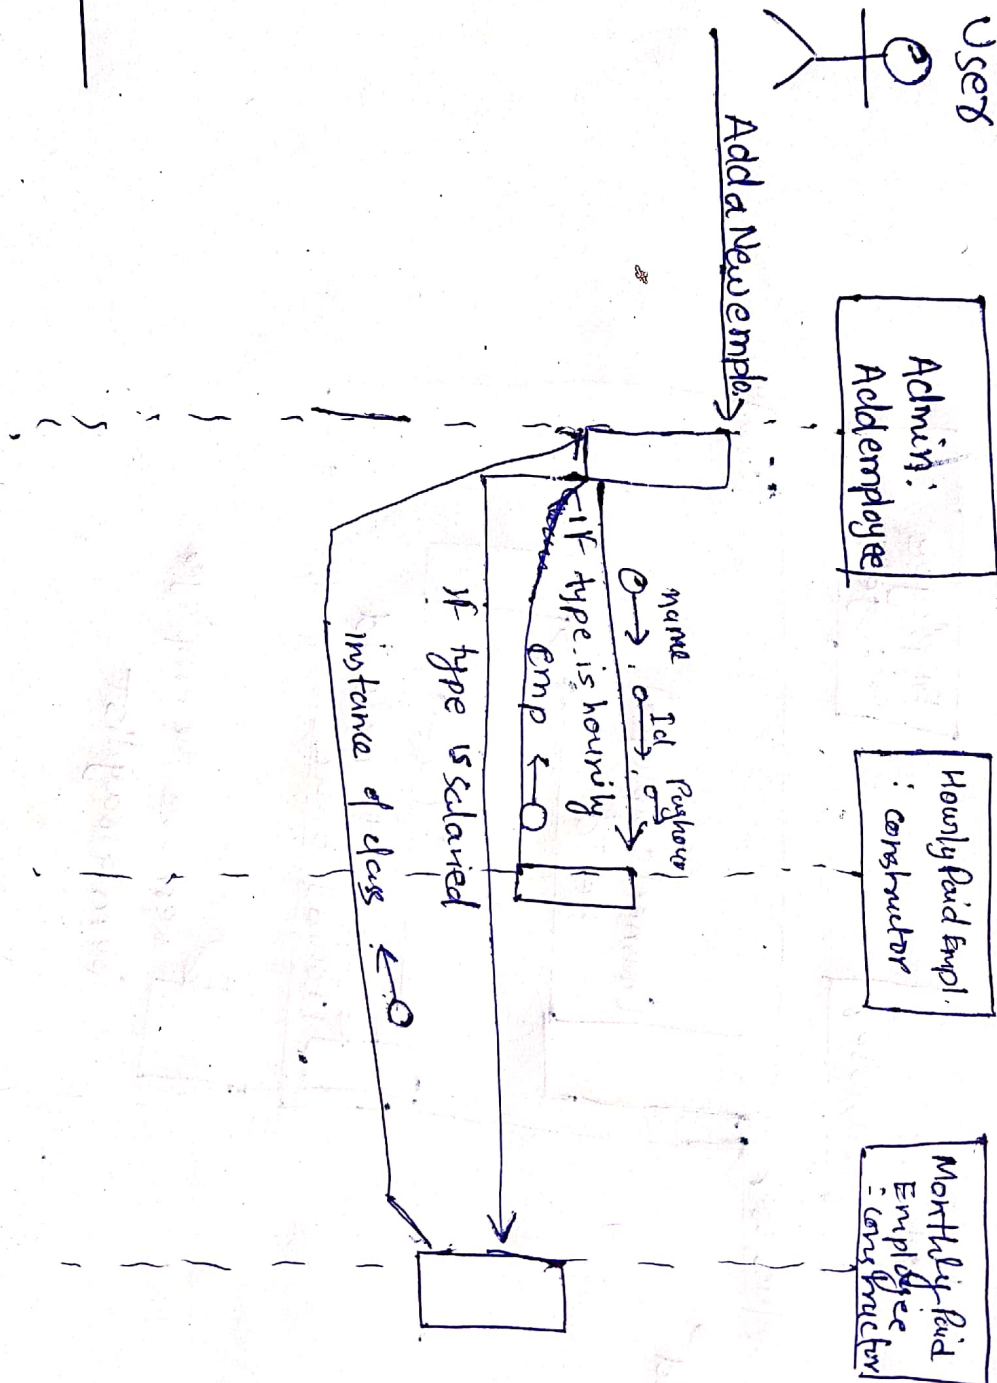 User
Admin:
Addemployee
Hourly Paid Empl.
: constructor
Monthly Paid
Employee
: constructor
Add a New emplo.
name
Id
Payhour
If type is hourily
emp
If type is salaried
instance of class